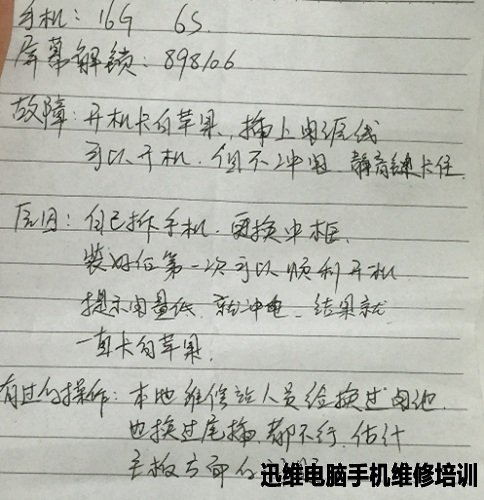 手机：16G 6S
屏幕解锁：898106
故障：开机卡白苹果，插上电源线
可以开机，但不冲电 静音键卡住
原因：自已拆手机，更换中框，
装好后第一次可以顺利开机
提示电量低，就冲电，结果就
一直卡白苹果。
有过的操作：本地维修站人员给换过电池
也换过尾插，都不行，估计
主板方面的
迅维电脑手机维修培训